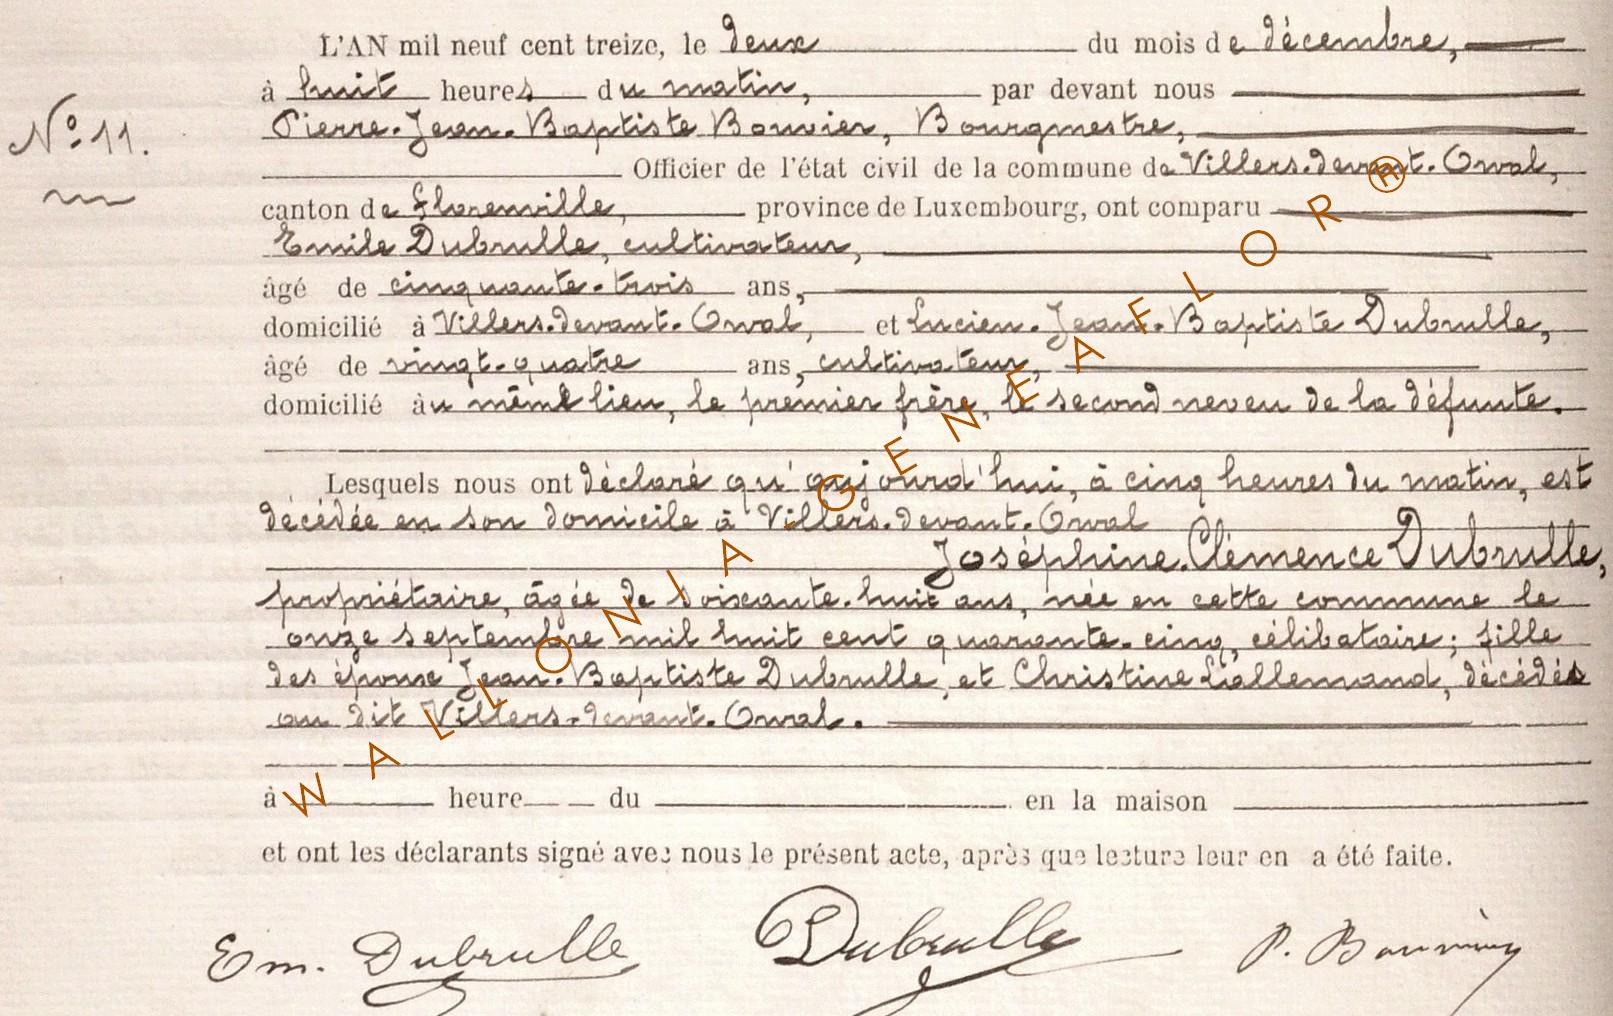 L'AN mil neuf cent treize, le deux du mois de décembre,
à huit heures du matin, par devant nous
N° 11.
Pierre-Jean-Baptiste Bouvier, Bourgmestre,
Officier de l'état civil de la commune de Villers-devant-Orval,
canton de Florenville, province de Luxembourg, ont comparu
Emile Dubrulle, cultivateur,
âgé de cinquante-trois ans,
domicilié à Villers-devant-Orval, et Lucien-Jean-Baptiste Dubrulle,
âgé de vingt-quatre ans, cultivateur,
domicilié au même lieu, le premier frère, le second neveu de la défunte.
Lesquels nous ont déclaré qu'aujourd'hui, à cinq heures du matin, est
décédée en son domicile à Villers-devant-Orval
Joséphine-Clémence Dubrulle,
propriétaire, âgée de soixante-huit ans, née en cette commune le
onze septembre mil huit cent quarante-cinq, célibataire; fille
des époux Jean-Baptiste Dubrulle et Christine Lallemand, décédés
au dit Villers-devant-Orval.
à heure du en la maison
et ont les déclarants signé avec nous le présent acte, après que lecture leur en a été faite.
Em. Dubrulle Dubrulle P. Bouvier
WALLONIA-GENEAFLOR®